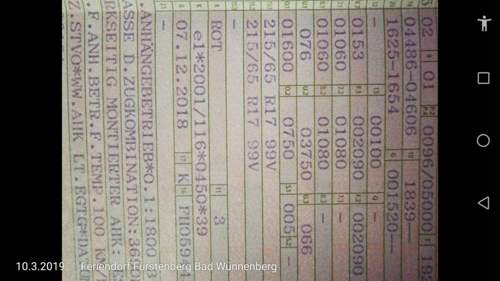 02 01 0096/05000 192
04486-04606 1839-
1625-1654 001520—
— 00100 —
0153 002090 002090
01060 01080 —
01060 01080 —
076 03750 066
01600 0750 005 —
215/65 R17 99V
215/65 R17 99V
—
ROT 3
e1*2001/116*0450*39
07.12.2018 K
—
.ANHÄNGEBETRIEB*0.1:1800
ASSE D.ZUGKOMBINATION:
RKSEITIG MONTIERTER AHK:
.F.ANH.BETR.F.TEMP.100 KM/
Z.STVO*WW.AHK LT.EGTG*DA
10.3.2019 Feriendorf Fürstenberg Bad Wünnenberg